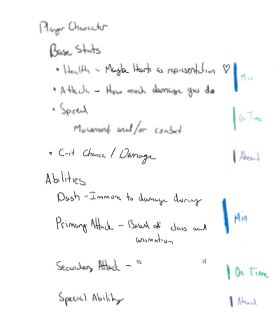 Player Character
Base Stats
• Health - Maybe Hearts as representation ♡
Min
• Attack - How much damage you do
• Speed
On Time
Movement and/or combat
• Crit Chance / Damage
Ahead
Abilities
Dash - Immune to damage during
Primary Attack - Based of class and
Min
animation
Secondary Attack - " "
On Time
Special Ability
Ahead